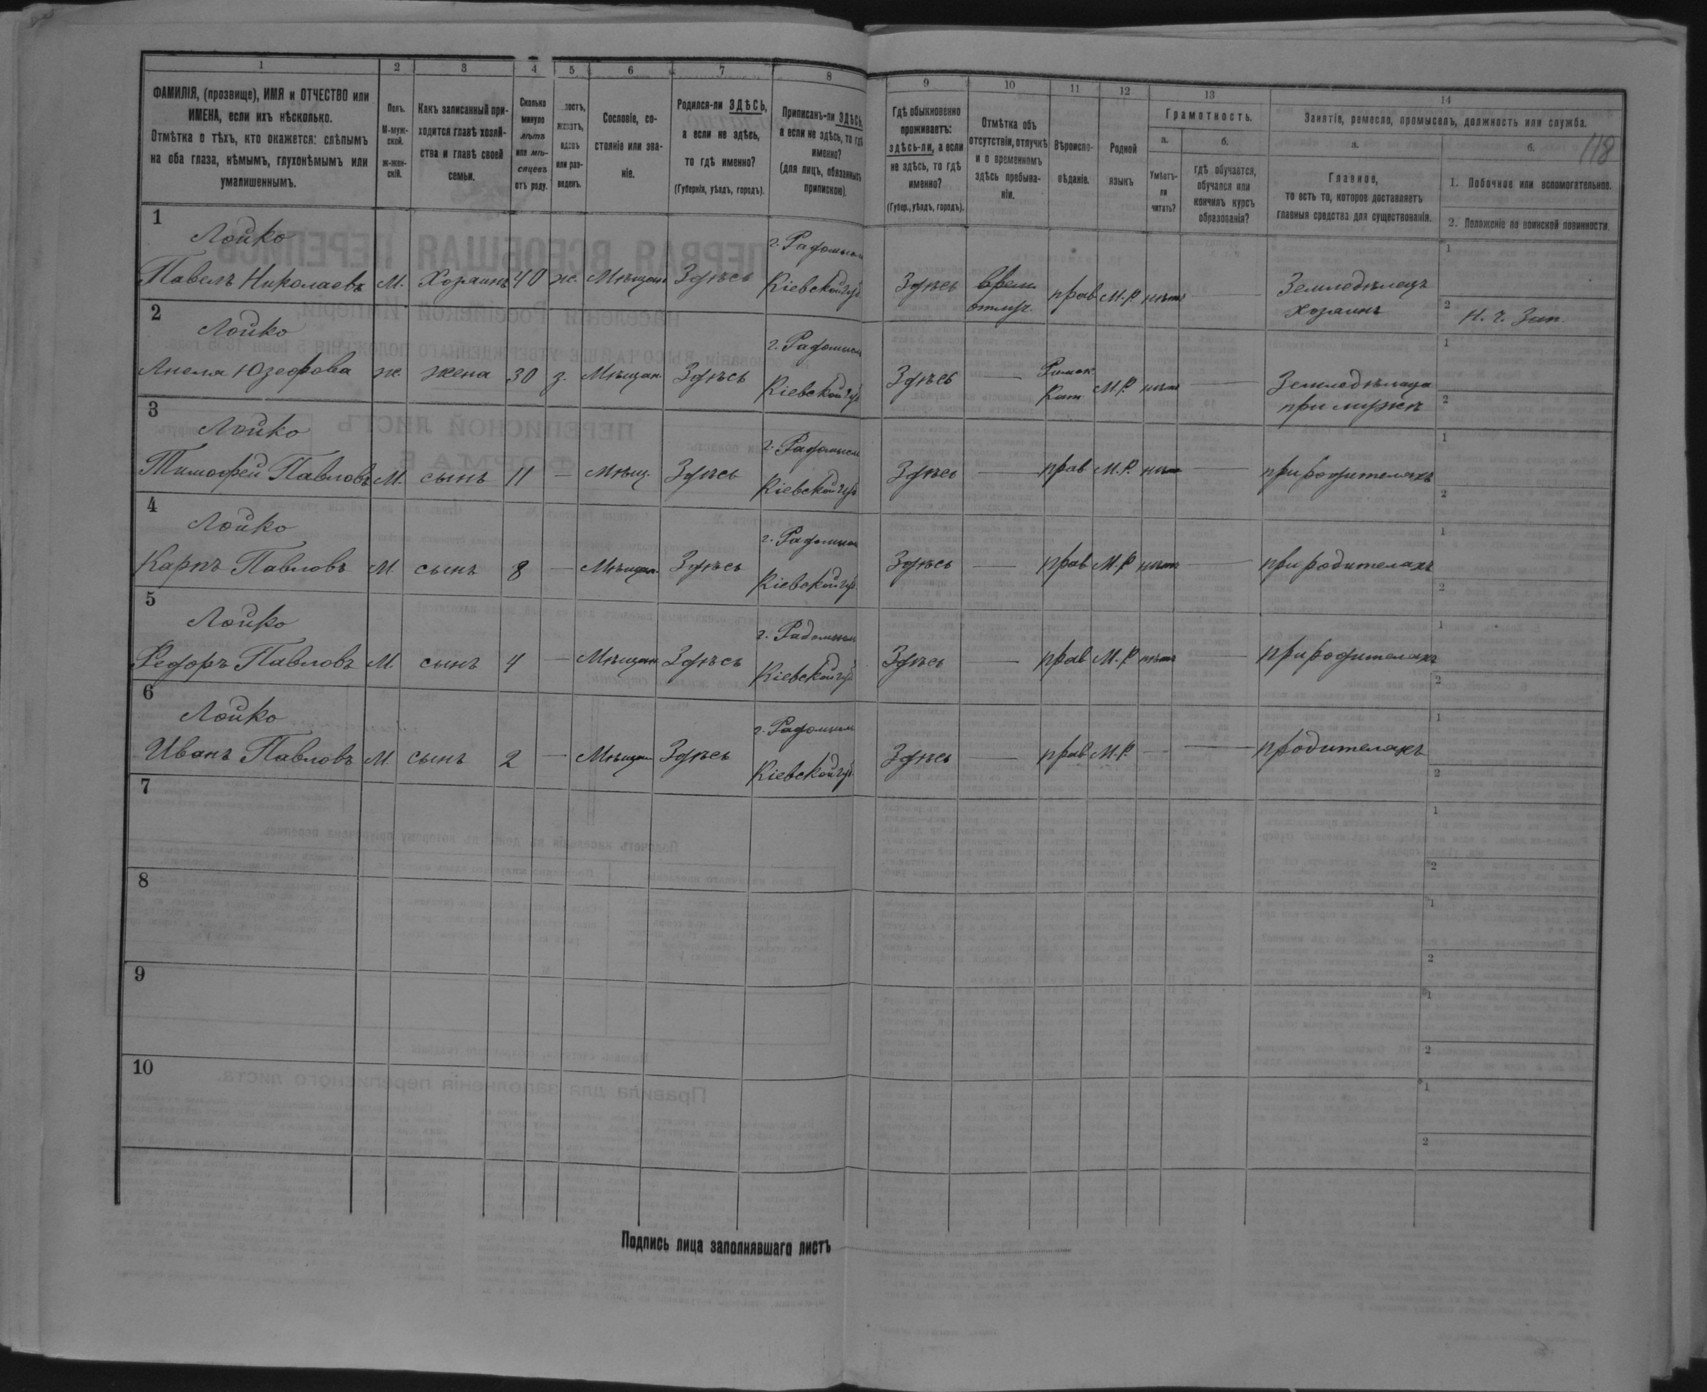 118
1 2 3 4 5 6 7 8 9 10 11 12 13 14
ФАМИЛІЯ, (прозвище), ИМЯ и ОТЧЕСТВО или
ИМЕНА, если ихъ нѣсколько.
Отмѣтка о тѣхъ, кто окажется: слѣпымъ
на оба глаза, нѣмымъ, глухонѣмымъ или
умалишеннымъ.
Полъ.
М-муж-
ской.
Ж-жен-
скій.
Какъ записанный при-
ходится главѣ хозяй-
ства и главѣ своей
семьи.
Сколько
минуло
лѣтъ
или мѣ-
сяцевъ
отъ роду.
женатъ,
вдовъ
или раз-
веденъ.
Сословіе, со-
стояніе или зва-
ніе.
Родился-ли ЗДѢСЬ,
а если не здѣсь,
то гдѣ именно?
(Губернія, уѣздъ, городъ).
Приписанъ-ли ЗДѢСЬ,
а если не здѣсь, то гдѣ
именно?
(для лицъ, обязанныхъ
припискою).
Гдѣ обыкновенно
проживаетъ:
здѣсь-ли, а если
не здѣсь, то гдѣ
именно?
(Губер., уѣздъ, городъ).
Отмѣтка объ
отсутствіи, отлучкѣ
и о временномъ
здѣсь пребыва-
ніи.
Вѣроиспо-
вѣданіе.
Родной
языкъ
Грамотность.
а. б.
Умѣетъ-
ли
читать?
гдѣ обучается,
обучался или
кончилъ курсъ
образованія?
Занятіе, ремесло, промыселъ, должность или служба.
а. б.
Главное,
то есть то, которое доставляетъ
главныя средства для существованія.
1. Побочное или вспомогательное.
2. Положеніе по воинской повинности.
1
Лойко г. Радомысл
Павелъ Николаевъ М. Хозяинъ 40 ж. Мѣщан Здѣсь Кіевской губ Здѣсь врем отлуч прав М.Р нѣтъ — Земледѣлецъ
хозяинъ
1
2 Н. ч. Зап.
2
Лойко г. Радомысл
Анеля Юзефова ж жена 30 з. Мѣщан Здѣсь Кіевской губ Здѣсь — Римск Кат М.Р нѣтъ — Земледѣлица
при мужѣ
1
2
3
Лойко г. Радомысл
Тимофей Павловъ М. сынъ 11 — Мѣщ. Здѣсь Кіевской губ Здѣсь — прав М.Р. нѣтъ — при родителяхъ
1
2
4
Лойко г. Радомысл
Карпъ Павловъ М сынъ 8 — Мѣщан Здѣсь Кіевской губ Здѣсь — прав М.Р нѣтъ — при родителяхъ
1
2
5
Лойко г. Радомысл
Федоръ Павловъ М. сынъ 4 — Мѣщан Здѣсь Кіевской губ Здѣсь — прав М.Р нѣтъ — при родителяхъ
1
2
6
Лойко г. Радомысл
Иванъ Павловъ М сынъ 2 — Мѣщан Здѣсь Кіевской губ Здѣсь — прав М.Р. — — при родителяхъ
1
2
7
1
2
8
1
2
9
1
2
10
1
2
Подпись лица заполнявшаго листъ